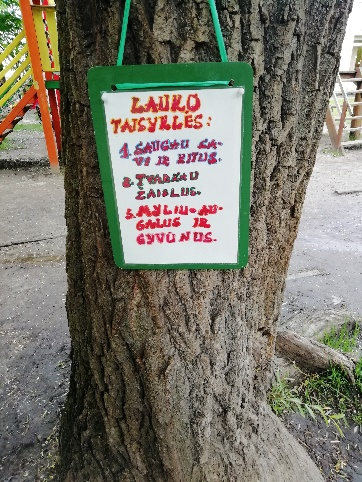 LAUKO
TAISYKLĖS:
1. SAUGAU SA-
VI IR KITUS.
2. TVARKAU
ŽAISLUS.
3. MYLIU AU-
GALUS IR
GYVŪNUS.